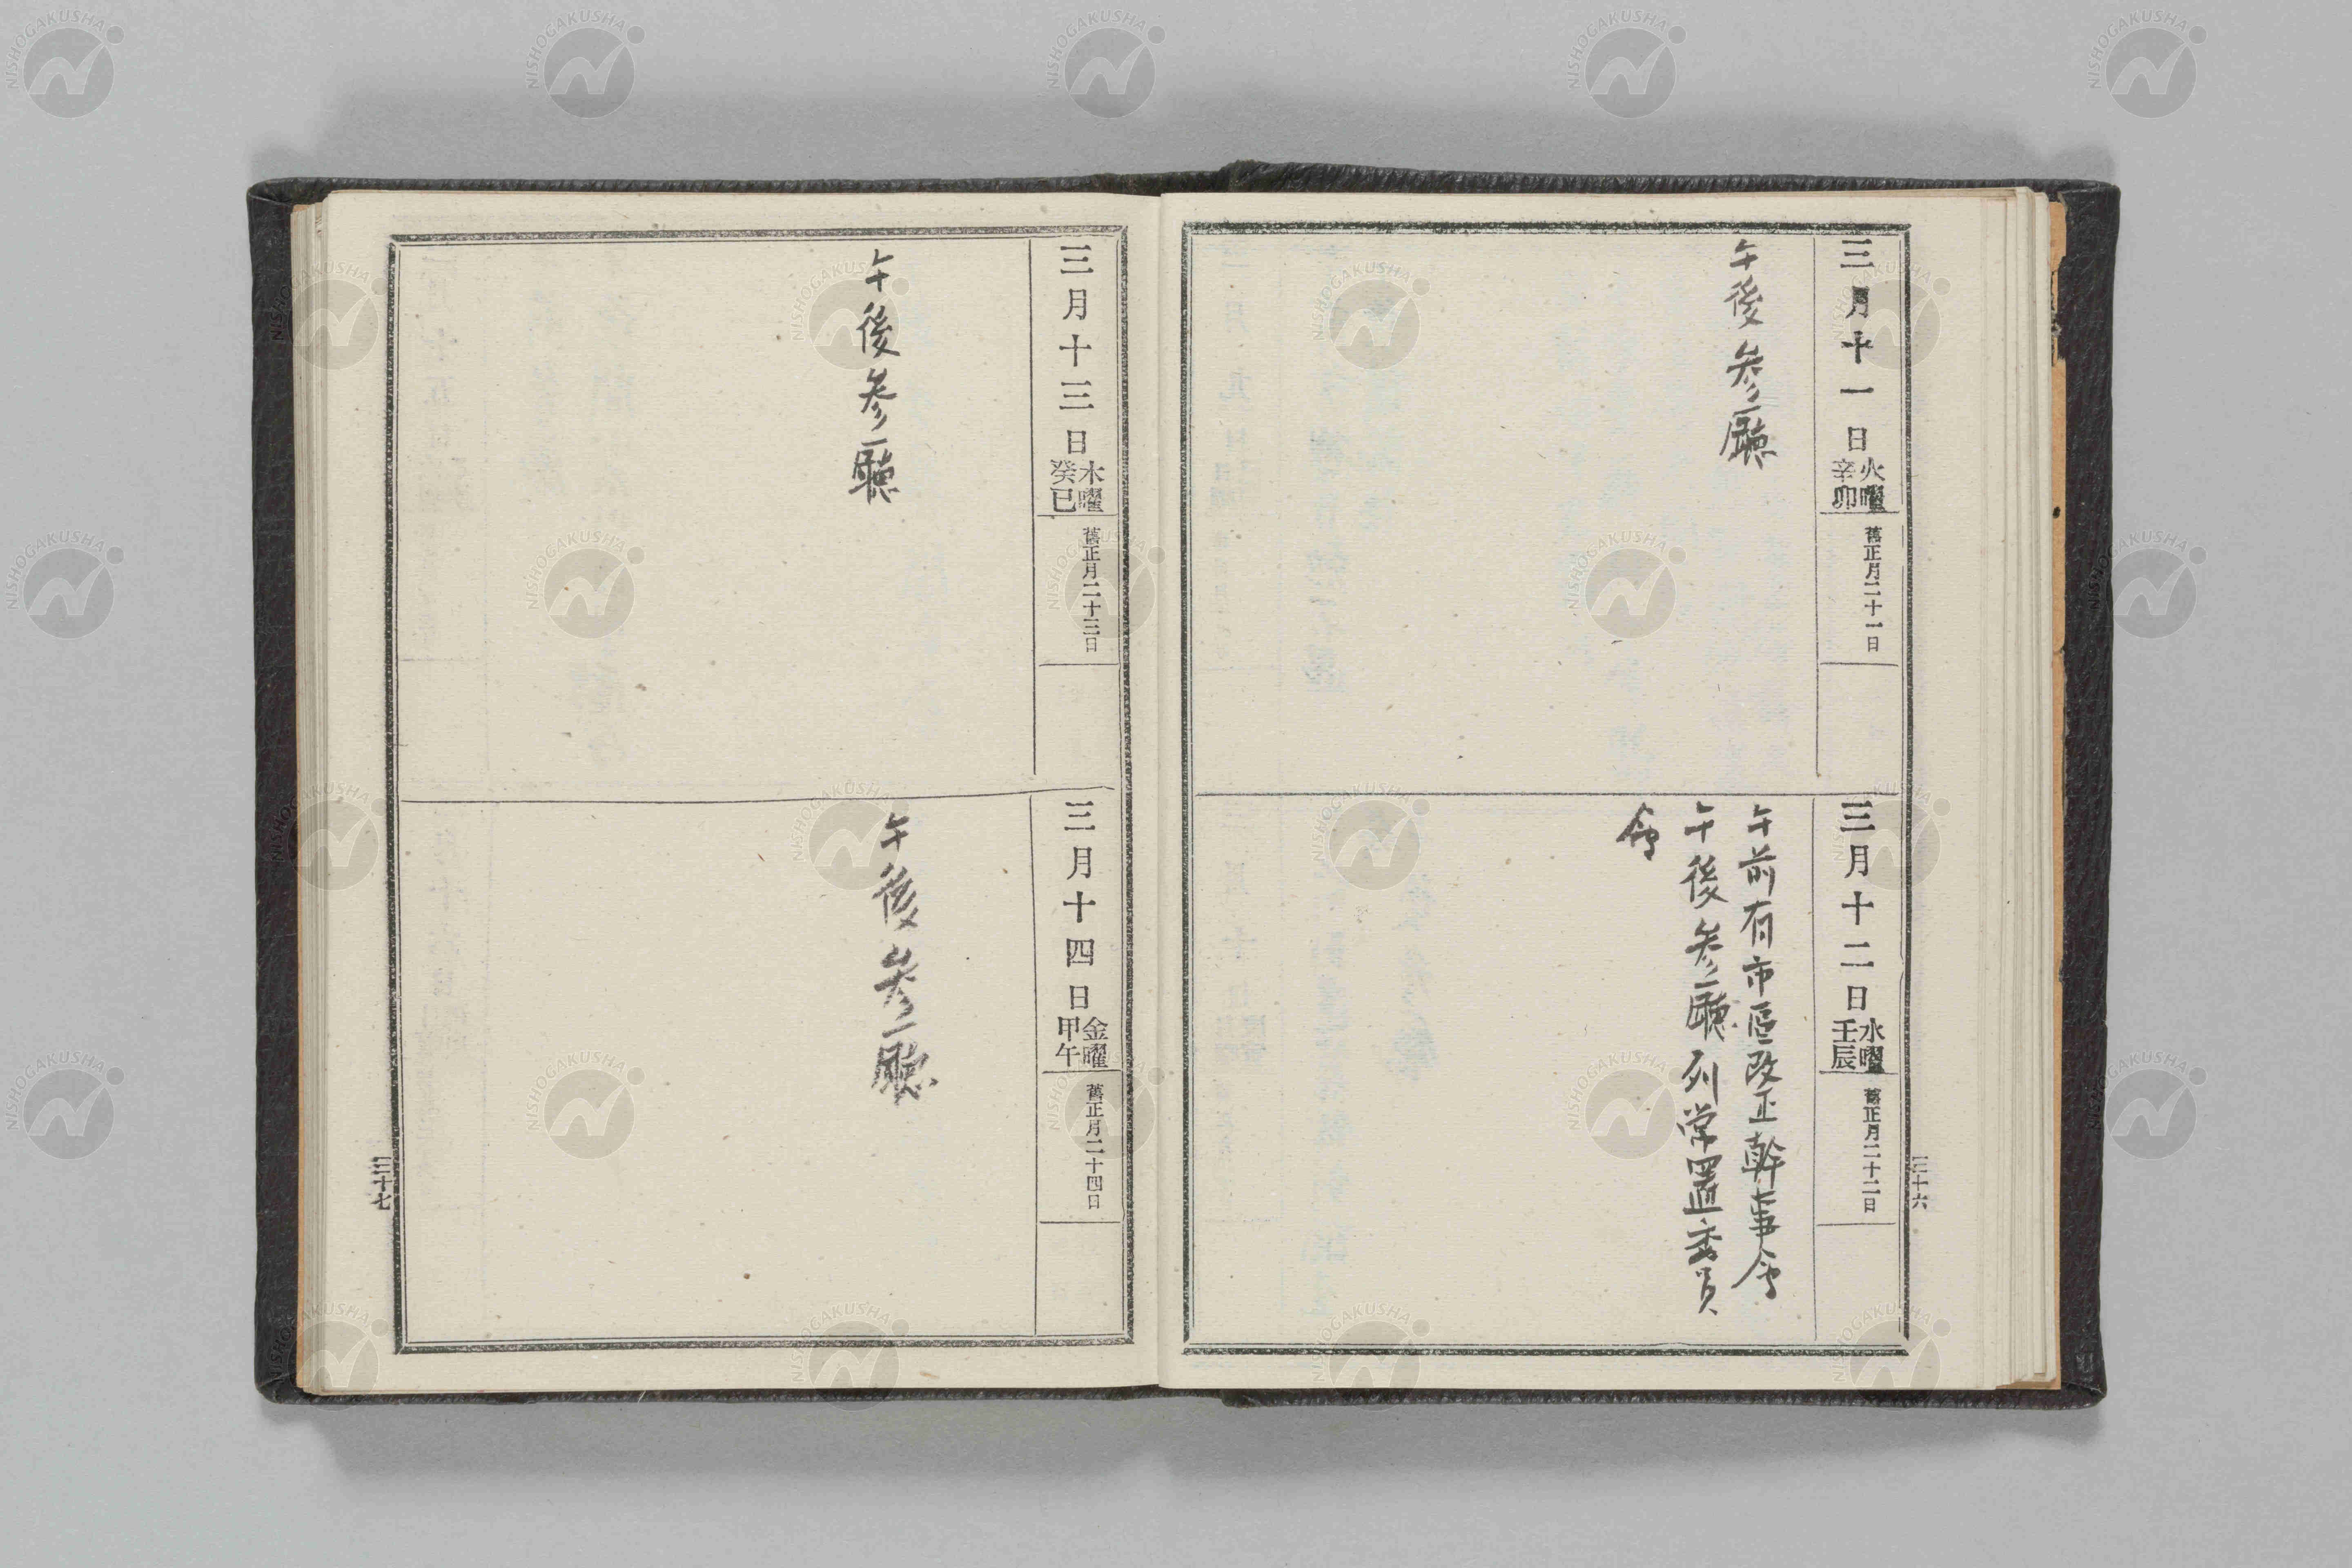 三月十一日
火曜
辛卯
舊正月二十一日
午後参廳
三月十二日
水曜
壬辰
舊正月二十二日
午前有市區改正幹事会
午後参廳列常置委員
会
三十六
三月十三日
木曜
癸巳
舊正月二十三日
午後参廳
三月十四日
金曜
甲午
舊正月二十四日
午後参廳
三十七
NISHOGAKUSHA